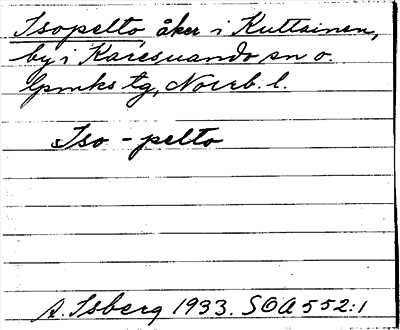 Isopelto åker i Kuttainen,
by i Karesuando sn o.
lpmks tg, Norrb. l.
Iso - pelto
A. Isberg 1933. SOA 552:1